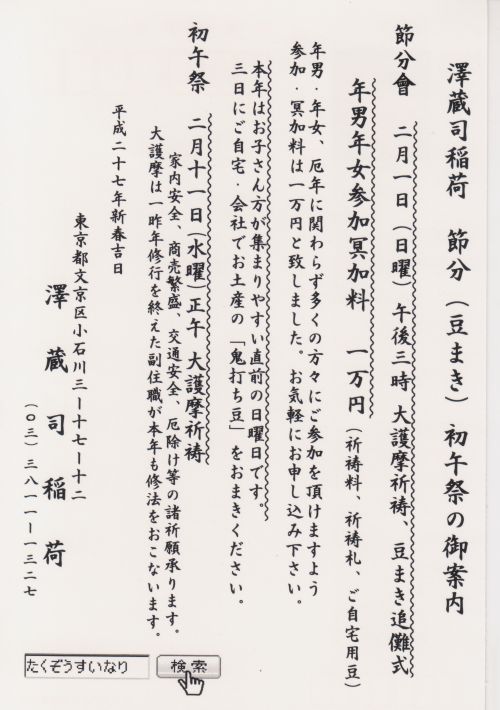 澤蔵司稲荷　節分（豆まき）初午祭の御案内
節分會　二月一日（日曜）午後三時 大護摩祈祷、豆まき追儺式
年男年女参加冥加料　一万円（祈祷料、祈祷札、ご自宅用豆）
年男・年女、厄年に関わらず多くの方々にご参加を頂けますよう
参加・冥加料は一万円と致しました。お気軽にお申し込み下さい。
本年はお子さん方が集まりやすい直前の日曜日です。
三日にご自宅・会社でお土産の「鬼打ち豆」をおまきください。
初午祭　二月十一日（水曜）正午 大護摩祈祷
家内安全、商売繁盛、交通安全、厄除け等の諸祈願承ります。
大護摩は一昨年修行を終えた副住職が本年も修法をおこないます。
平成二十七年新春吉日
東京都文京区小石川三ー十七ー十二
澤蔵司稲荷
（〇三）三八一一ー一三二七
たくぞうすいなり
検索